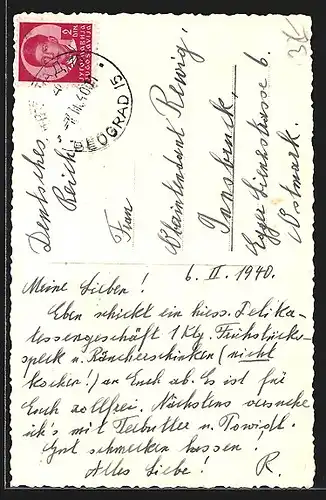 3K
2
DIN
ЈУГОСЛАВИЈА
JUGOSLAVIJA
BEOGRAD 15
Deutsches
Reich
Frau
Oberintendant Rewig,
Innsbruck,
Egger-Lienzstrasse 6.
Ostmark.
6. II. 1940.
Meine Lieben!
Eben schickt ein hies. Delika-
tessengeschäft 1 Klg. Frühstücks-
speck u. Räucherschinken (nicht
kochen!) an Euch ab. Es ist für
Euch zollfrei. Nächstens versuche
ich's mit Teebutter u. Powidl.
Gut schmecken lassen!
Alles Liebe! R.